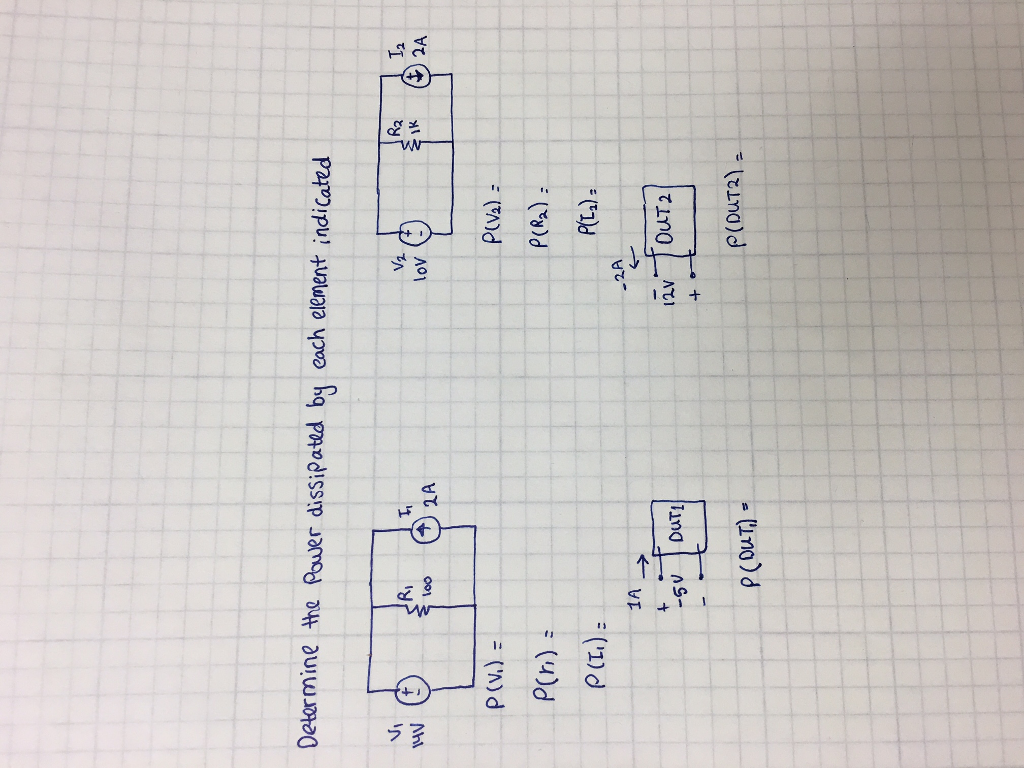 Determine the Power dissipated by each element indicated
V1
14V
+
-
R1
100
I1
2A
P(V1) =
P(r1) =
P(I1) =
1A →
+
-5V
-
DUT1
P(DUT1) =
V2
10V
+
-
R2
1K
I2
2A
P(V2) =
P(R2) =
P(I2) =
-2A
←
-
12V
+
DUT2
P(DUT2) =